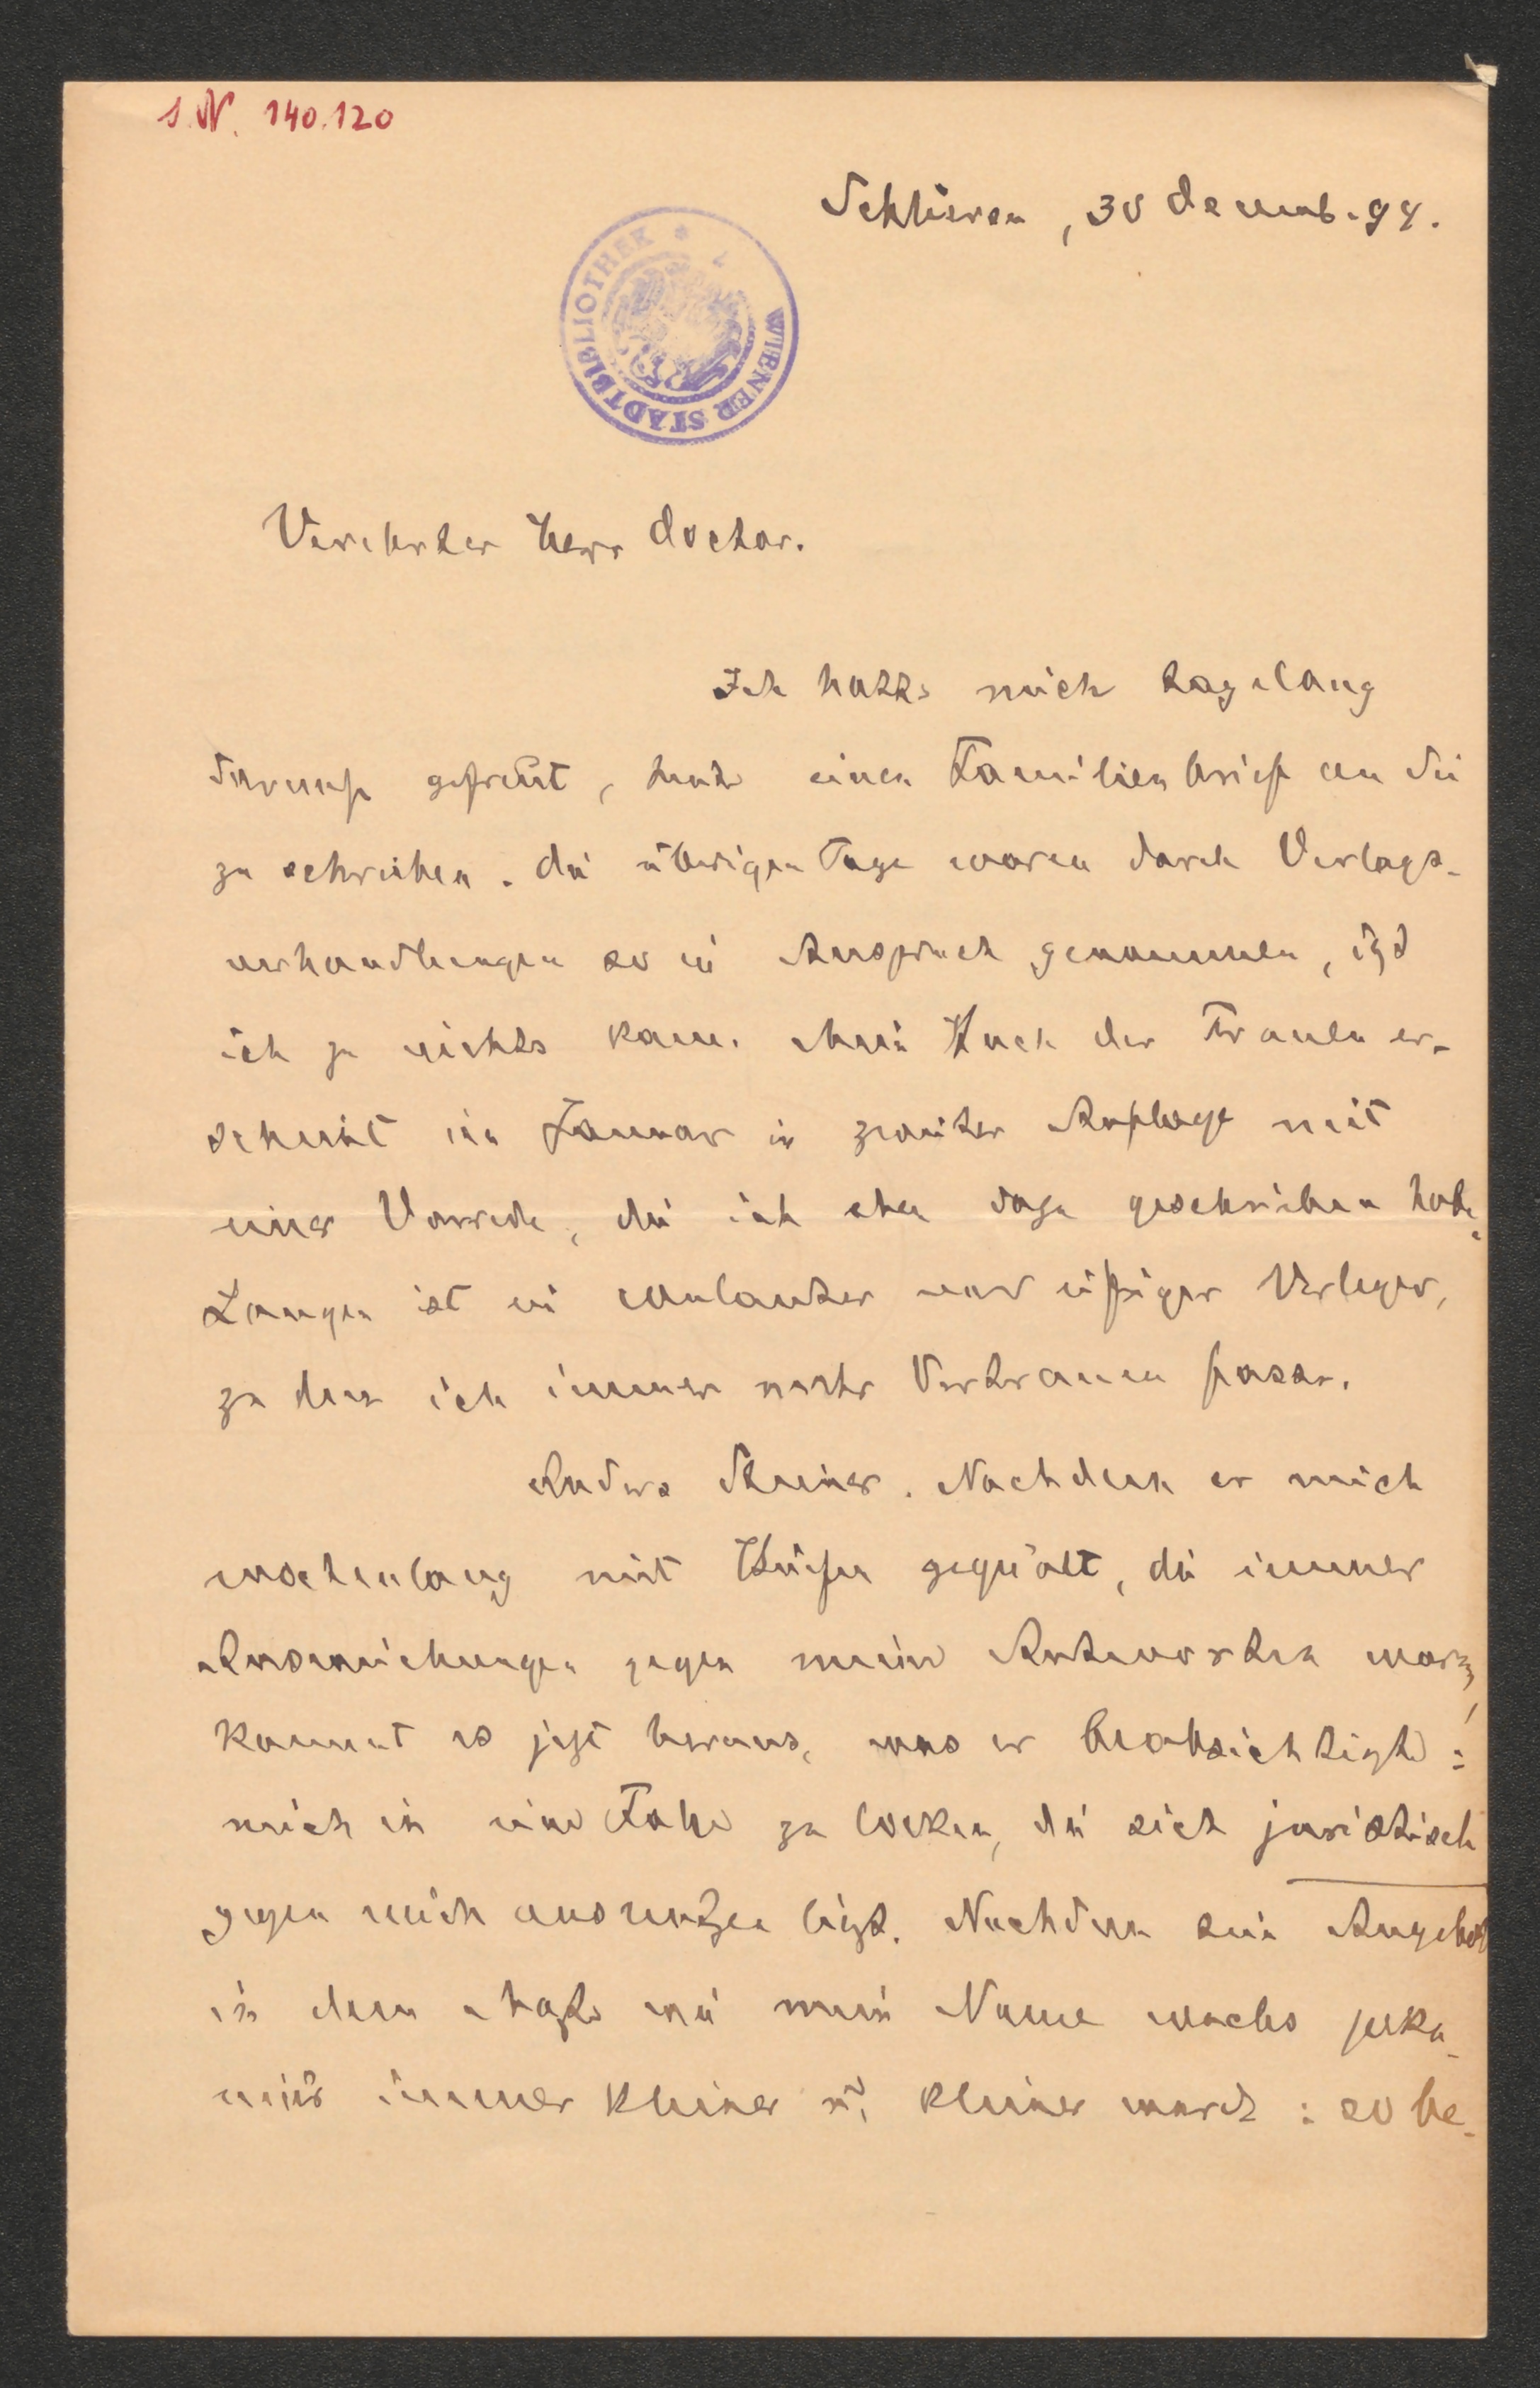 I.N. 140.120
Schliersee, 30 Decemb. 94.
WIENER STADTBIBLIOTHEK
Verehrter Herr Doctor.
Ich hatte mich tagelang
darauf gefreut, heute einen Familienbrief an Sie
zu schreiben. Die übrigen Tage waren durch Verlags-
verhandlungen so in Anspruch genommen, daß
ich zu nichts kam. Mein Buch der Frauen er-
scheint im Januar in zweiter Auflage mit
einer Vorrede, die ich eben dazu geschrieben habe.
Langen ist ein coulanter und eifriger Verleger,
zu dem ich immer mehr Vertrauen fasse.
Anders Steiner. Nachdem er mich
wochenlang mit Briefen gequält, die immer
Ausweichungen gegen meine Antworten waren,
kommt es jetzt heraus, was er beabsichtigte:
mich in eine Falle zu locken, die sich juristisch
gegen mich ausnutzen läßt. Nachdem sein Angebot
in dem Maße wie mein Name wuchs
immer kleiner u. kleiner ward: so be-